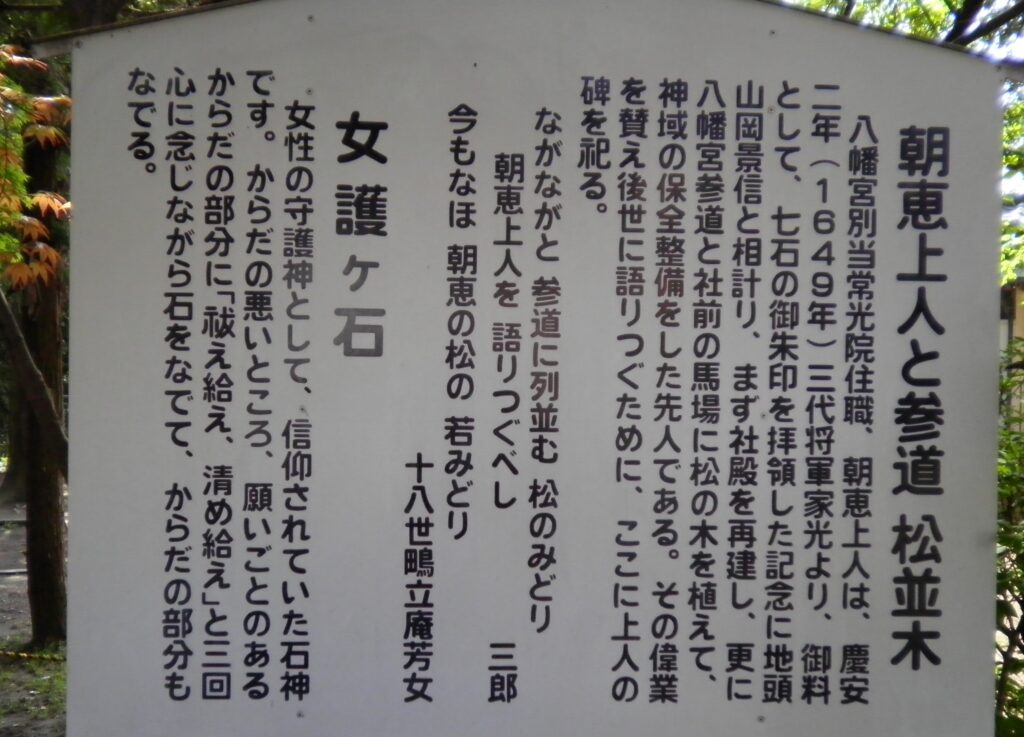 朝恵上人と参道 松並木
八幡宮別当常光院住職、朝恵上人は、慶安
二年（１６４９年）三代将軍家光より、御料
として、七石の御朱印を拝領した記念に地頭
山岡景信と相計り、まず社殿を再建し、更に
八幡宮参道と社前の馬場に松の木を植えて、
神域の保全整備をした先人である。その偉業
を賛え後世に語りつぐために、ここに上人の
碑を祀る。
ながながと 参道に列並む 松のみどり
朝恵上人を 語りつぐべし 三郎
今もなほ 朝恵の松の 若みどり
十八世鴫立庵芳女
女護ヶ石
女性の守護神として、信仰されていた石神
です。からだの悪いところ、願いごとのある
からだの部分に「祓え給え、清め給え」と三回
心に念じながら石をなでて、からだの部分も
なでる。